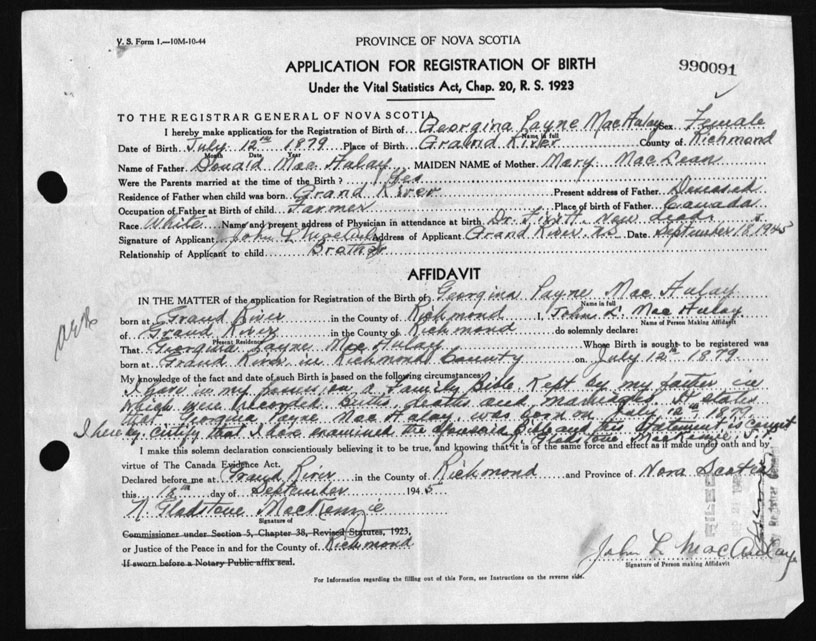 V. S. Form 1.—10M-10-44
PROVINCE OF NOVA SCOTIA
APPLICATION FOR REGISTRATION OF BIRTH
990091
Under the Vital Statistics Act, Chap. 20, R. S. 1923
TO THE REGISTRAR GENERAL OF NOVA SCOTIA
I hereby make application for the Registration of Birth of Georgina Jayne MacAulay Sex Female
Name in full
Date of Birth July 12th 1879 Place of Birth Grand River County of Richmond
Month Date Year
Name of Father Donald MacAulay MAIDEN NAME of Mother Mary MacLean
Were the Parents married at the time of the Birth? Yes
Residence of Father when child was born Grand River Present address of Father Deceased
Occupation of Father at Birth of child. Farmer Place of birth of Father Canada
Race White Name and present address of Physician in attendance at birth Dr. now dead
Signature of Applicant John L Address of Applicant Grand River N.S. Date September 18 1945
Relationship of Applicant to child Brother
AFFIDAVIT
IN THE MATTER of the application for Registration of the Birth of Georgina Jayne MacAulay
Name in full
born at Grand River in the County of Richmond I, John L MacAulay
Name of Person Making Affidavit
of Grand River in the County of Richmond do solemnly declare:
Present Residence
That Georgina Jayne MacAulay Whose Birth is sought to be registered was
born at Grand River in Richmond County on July 12th 1879.
My knowledge of the fact and date of such Birth is based on the following circumstances:
I have in my possession a Family Bible kept by my father in
which were recorded Births, deaths and marriages. It states
that Georgina Jayne MacAulay was born on July 12th 1879
I hereby certify that I have examined the Bible and this statement is correct
Gladstone MacKenzie J.P.
I make this solemn declaration conscientiously believing it to be true, and knowing that it is of the same force and effect as if made under oath and by
virtue of The Canada Evidence Act.
Declared before me at Grand River in the County of Richmond and Province of Nova Scotia
this 18th day of September 1945
N Gladstone MacKenzie
Signature of
Commissioner under Section 5, Chapter 38, Revised Statutes, 1923,
or Justice of the Peace in and for the County of Richmond
If sworn before a Notary Public affix seal.
John L MacAulay
Signature of Person making Affidavit
For Information regarding the filling out of this Form, see Instructions on the reverse side.